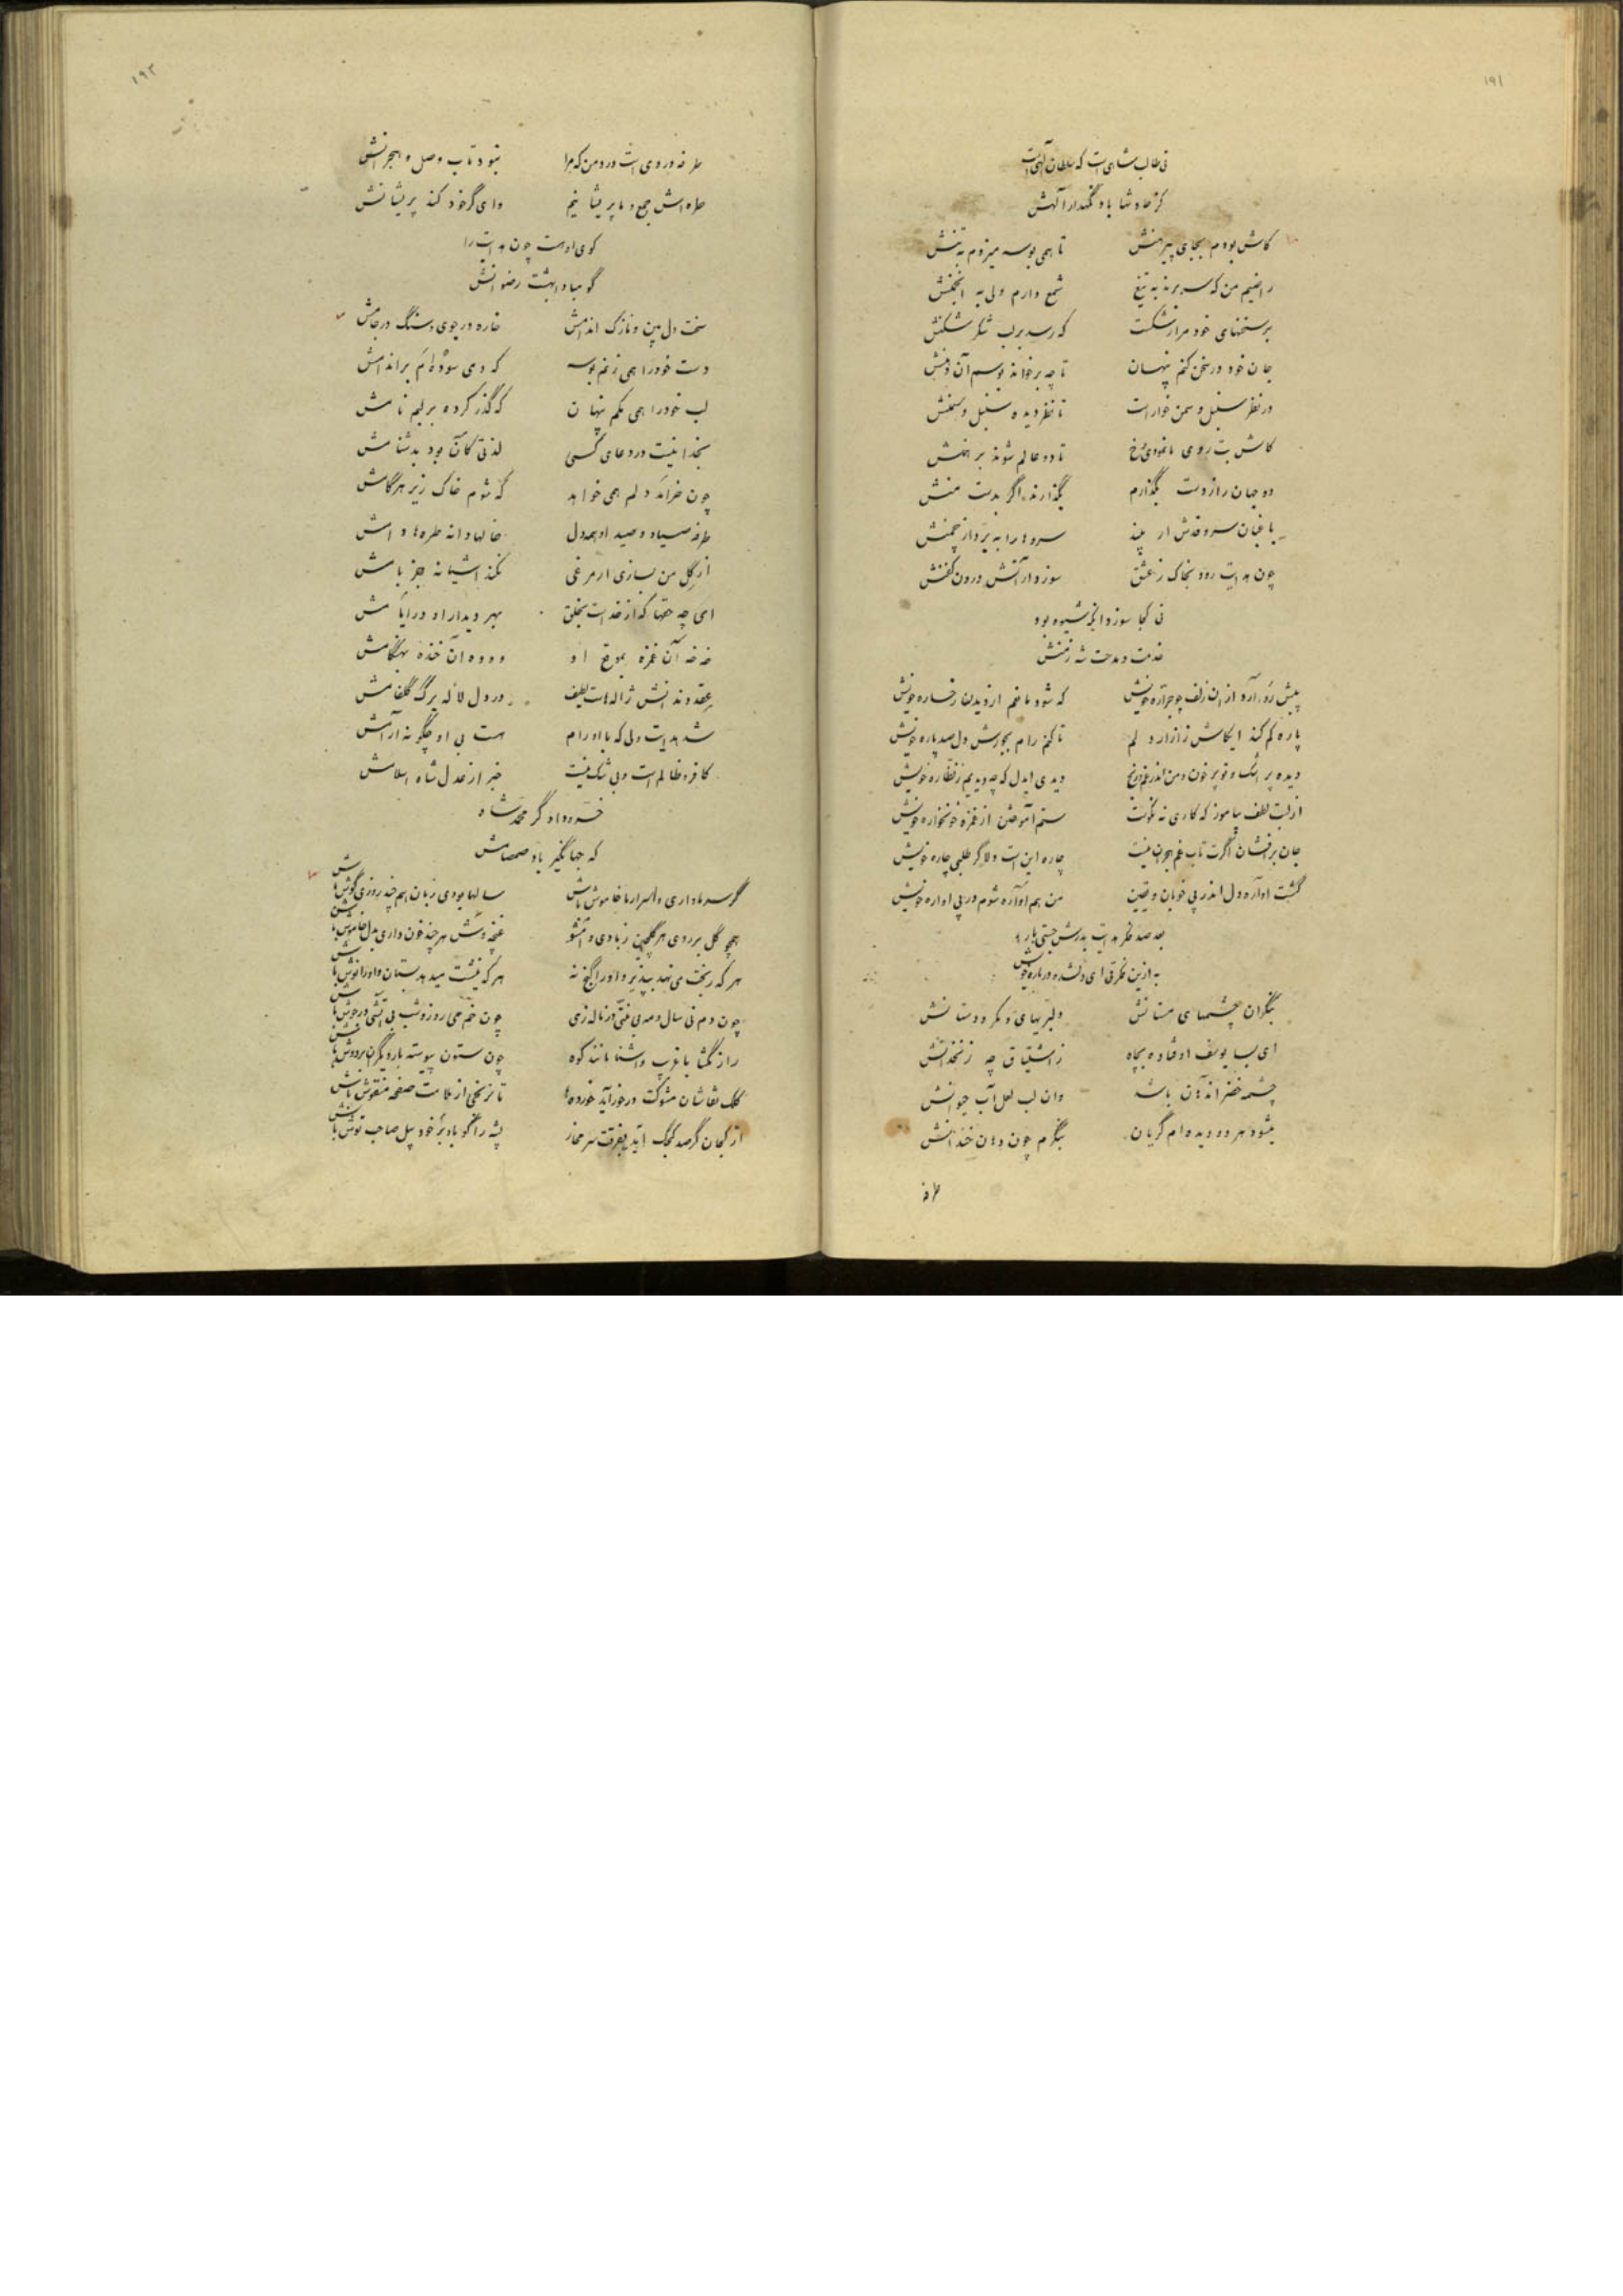 ۱۹۱
نی طالب شاهی است که سلطان آلهی است
کز حادثها باد نگهدار آلهش
کاش بودم بجای پیرهنش تا همی بوسه میزدم به تنش
راضیم من که سر برند به تیغ شمع دارم ولی به انجمنش
بر سخنهای خود مرا رشکست که رسد بر لب شکر شکنش
جان خود در سخن کنم پنهان تا چه برخواند بوسم آن دهنش
در نظر سنبل و سمن خوار است تا نظر دیده سنبل و سمنش
کاش بت روی ما نمودی رخ تا دو عالم شوند برهمنش
دو جهان را ز دست بگذارم بگذارند اگر بدست منش
باغبان سرو قدش ار بیند سروها را به برد از چمنش
چون هدایت رود بخاک ز عشق سوزد از آتش درون کفنش
نی کجا سوزد آنکه شیوه بود
خدمت و مدحت شه زمنش
پیش رو آرد از آن زلف چو جراره خویش که شود مانعم از دیدن رخساره خویش
پاره کم کند ایکاش ز آزار دلم تا کنم رام بجورش دل صد پاره خویش
دیده پر اشک و تو پر خون و من اندر غم و رنج دیدی ایدل که چه دیدیم ز نظاره خویش
از لبت لطف بیاموز که کاری نه نکوست ستم آموختن از غمزه خونخواره خویش
جان برافشان اگرت تاب غم هجران نیست چاره این است دلا گر طلبی چاره خویش
گشت آواره دل اندر پی خوبان و یقین من هم آواره شوم در پی آواره خویش
بعد صد فکر هدایت بدرش جستی بار
به ازین فکرتی ای دلشده درباره خویش
بنگر آن چشمهای مستانش دلبریهای و مکر و دستانش
ای بسا یوسف اوفتاده بچاه ز اشتیاق چه زنخدانش
چشمه خضر اندهان باشد وان لب لعل آب حیوانش
میشود هر دو دیده‌ام گریان بنگرم چون دهان خندانش
طرفه
۱۹۲
طرفه دردی است درد من که مرا نبود تاب وصل و هجرانش
طره‌اش جمع و ما پریشانیم وای گر خود کند پریشانش
کوی او هست چون هدایت را
گو مباد بهشت رضوانش
سخت دل بین و نازک اندامش خاره در جوی و سنگ در جامش
دست خود را همی زنم بوسه که دمی سوده‌ام بر اندامش
لب خود را همی مکم پنهان که گذر کرده بر لبم نامش
بخدا نیست در دعای کسی لذتی کان بود بدشنامش
چون خرامد دلم همی خواهد که شوم خاک زیر هر گامش
طرفه صیاد و صید او همه دل خالها دانه طره‌ها دامش
از گل من بسازی ار مرغی نکند آشیانه جز بامش
ای چه حقها که از خداست بخلق بهر دیدار او در ایامش
خه خه آن غمزه بموقع او وه وه آن خنده بهنگامش
عقد دندانش ژاله هاست لطیف در دل لاله برگ گلفامش
شد هدایت دلی که با او رام هست بی او چگونه آرامش
کافر و ظالم است و بی شک نیست خبر از عدل شاه اسلامش
خسرو دادگر محمد شاه
که جهانگیر باد صمصامش
گر سر ما داری و اسرار ما خاموش باش سالها بودی زبان هم چند روزی گوش باش
همچو گل بر روی هر گلچین ز بادی وا مشو غنچه وش هر چند خون داری بدل خاموش باش
هر که رنجت می نهد بپذیر و او را گنج نه هر که نیشت میدهد بستان و او را نوش باش
چون دم نی سال و مه بی منتی در ناله زی چون خم می روز و شب بی آتشی در جوش باش
راز نگشا با غریب و آشنا مانند کوه چون ستون پیوسته بار دیگران بر دوش باش